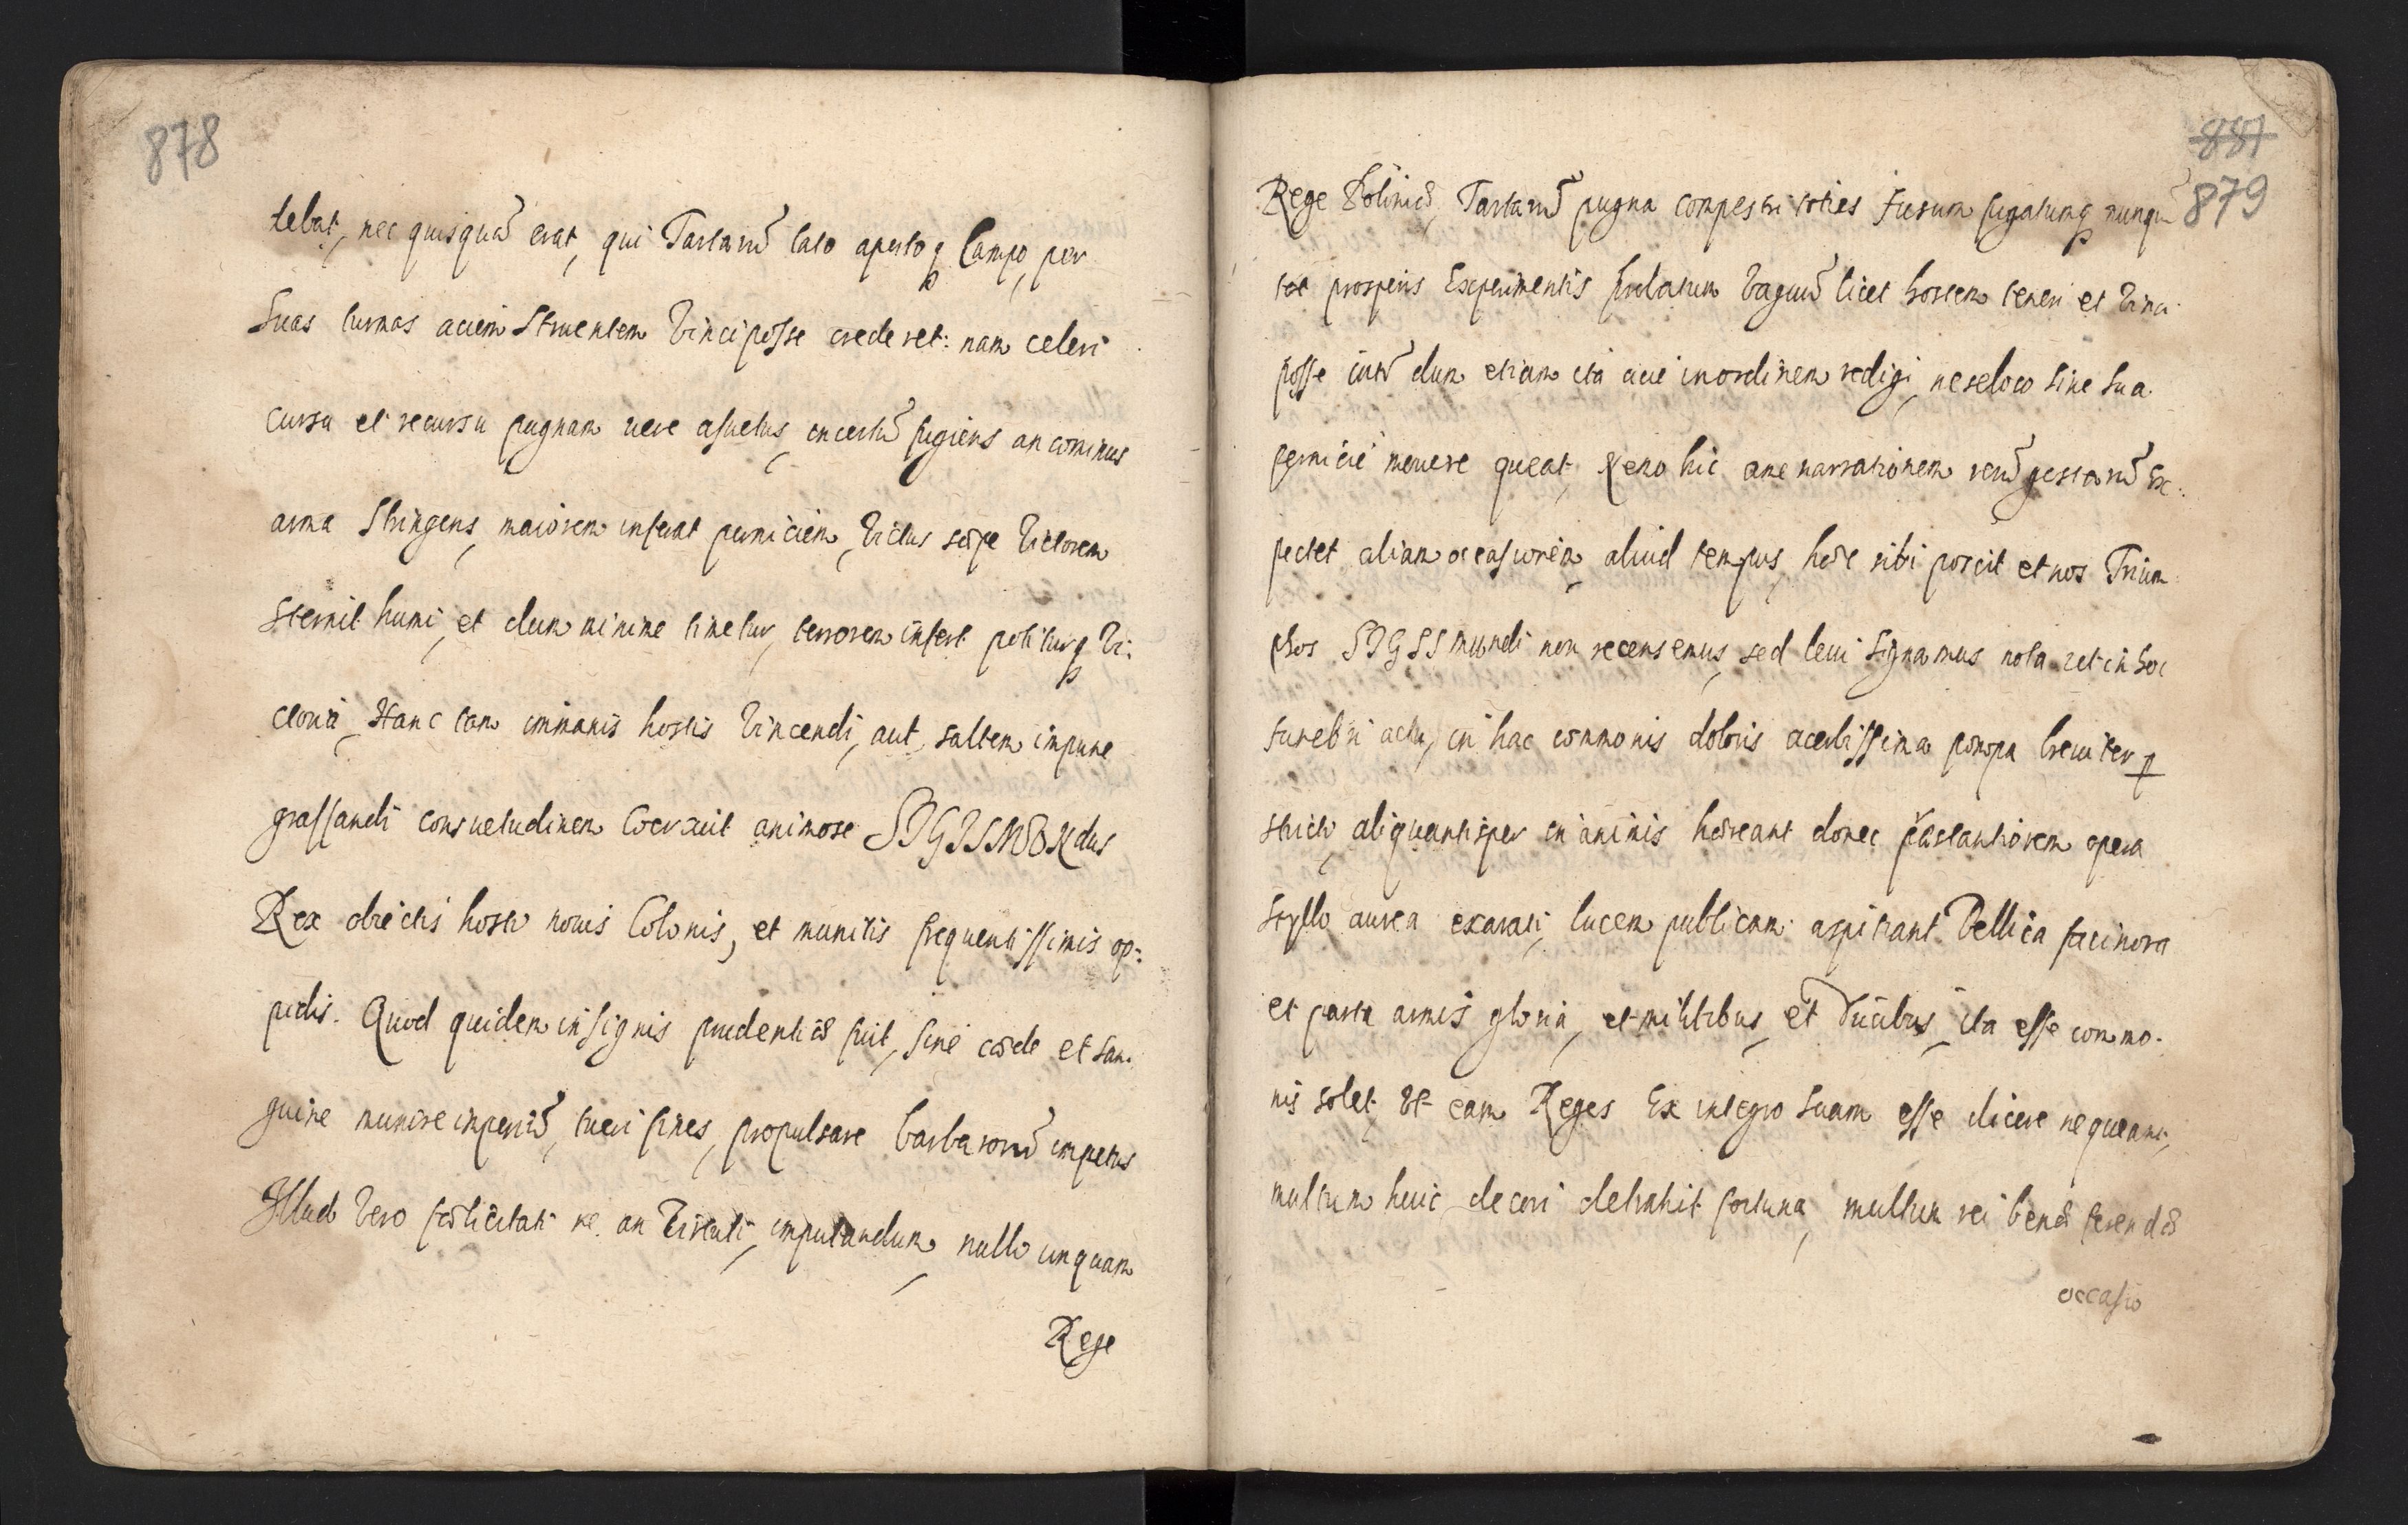 878
tebat, nec quisquā erat, qui Tartarū lato apertoq Campo, per
Suas turmas aciem Struentem Vinci posse crederet: nam celeri
cursu et recursu pugnam uere asuetus, incertū fugiens an cominus
arma Stringens, maiorem inferat perniciem, Victus sæpe Victorem
Sternit humi, et dum minime timetur, terrorem infert potiturq Vi:
ctoria, Hanc tam immanis hostis Vincendi, aut saltem impune
grassandi consuetudinem Coercuit animose SIGISMUNdus
Rex obiectis hosti nouis Colonis, et munitis frequentissimis op:
pidis. Quod quidem insignis prudentiæ fuit, sine cæde et san:
guine munire imperiū, tueri fines, propulsare barbarorū impetus
Illud Vero fœlicitati ne an Virtuti, imputandum, nullo unquam
Rege
881
879
Rege Poloniæ, Tartarū pugna compestri toties fusum fugatumq nunqū
tot prosperis Experimentis probatum Vagum licet hostem teneri et Vinci
posse interdum etiam ita acie inordinem redigi, ne se loco sine sua
pernicie mouere queat, Nemo hic a me narrationem rerū gestarū Ex:
pectet aliam occasionem, aliud tempus, hæc sibi poscit et nos Trium:
phos SIGISmundi non recensemus, sed leui signamus nota ut in hoc
funebri actu, in hac commonis doloris acerbissima pompa breuiter p
stricti, aliquantisper in animis hæreant donec præstantiorem opera
Styllo aurea exarati, lucem publicam aspitiant. Bellica facinora
et parta armis gloria, et militibus, et Ducibus, ita esse commo:
nis solet, Ut eam Reges Ex integro Suam esse dicere nequeant,
multum huic decori detrahit fortuna, multum rei benæ gerendæ
occasio